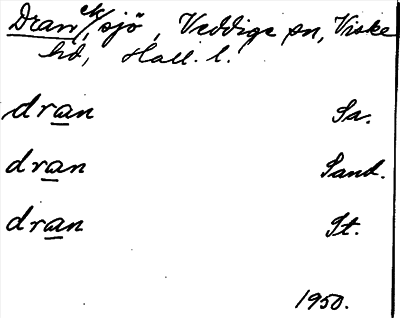 Dran ck/sjö, Veddige sn, Viske
hd, Hall. l.
dran Sa.
dran Sand.
dran St.
1950.